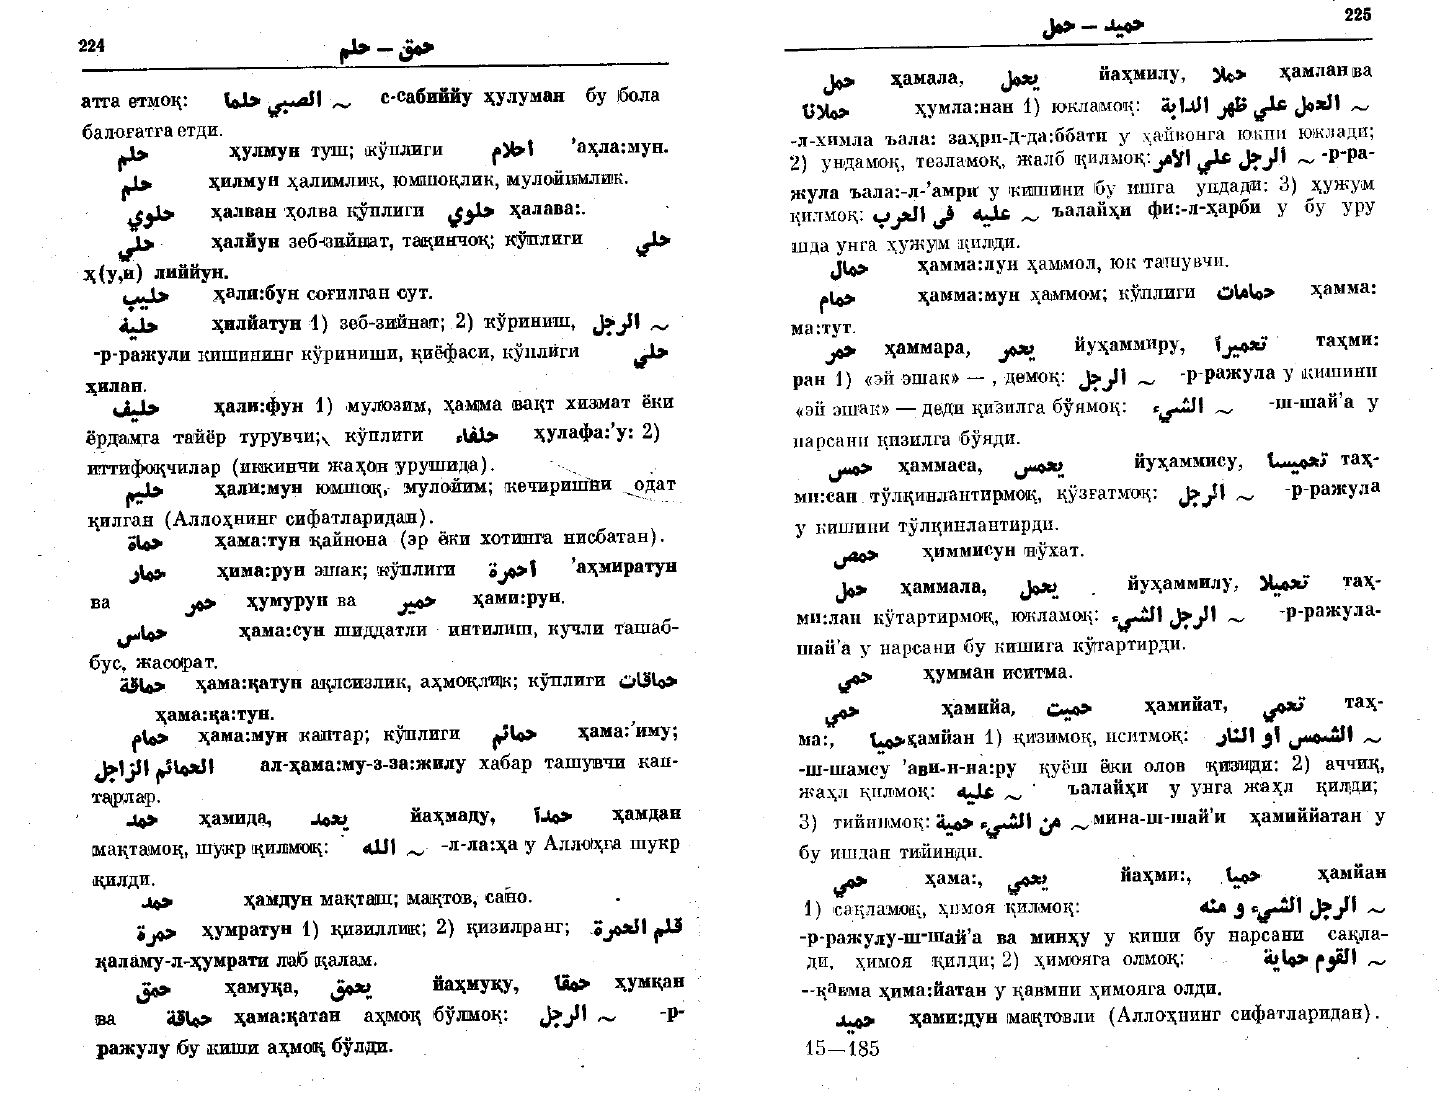 224
حمق — حلم
атга етмоқ: الصبي حلما ~ с-сабиййу ҳулуман бу бола
балоғатга етди.
حلم ҳулмун туш; кўплиги أحلام ’аҳла:мун.
حلم ҳилмун ҳалимлик, юмшоқлик, мулойимлик.
حلوي ҳалван ҳолва кўплиги حلاوي ҳалава:.
حلي ҳалйун зеб-зийнат, тақинчоқ; кўплиги حلي
ҳ(у,и) лиййун.
حليب ҳали:бун соғилган сут.
حلية ҳилйатун 1) зеб-зийнат; 2) кўриниш, الرجل ~
-р-ражули кишининг кўриниши, қиёфаси, кўплиги حلي
ҳилан.
حليف ҳали:фун 1) мулозим, ҳамма вақт хизмат ёки
ёрдамга тайёр турувчи; кўплиги حلفاء ҳулафа:’у: 2)
иттифоқчилар (иккинчи жаҳон урушида).
حليم ҳали:мун юмшоқ, мулойим; кечиришни одат
қилган (Аллоҳнинг сифатларидан).
حماة ҳама:тун қайнона (эр ёки хотинга нисбатан).
حمار ҳима:рун эшак; кўплиги أحمرة ’аҳмиратун
ва حمر ҳумурун ва حمير ҳами:рун.
حماس ҳама:сун шиддатли интилиш, кучли ташаб-
бус, жасорат.
حماقة ҳама:қатун ақлсизлик, аҳмоқлик; кўплиги حماقات
ҳама:қа:тун.
حمام ҳама:мун каптар; кўплиги حمائم ҳама:’иму;
الحمائم الزاجل ал-ҳама:му-з-за:жилу хабар ташувчи кап-
тарлар.
حمد ҳамида, يحمد йаҳмаду, حمداً ҳамдан
мақтамоқ, шукр қилмоқ: الله ~ -л-ла:ҳа у Аллоҳга шукр
қилди.
حمد ҳамдун мақташ; мақтов, сано.
حمرة ҳумратун 1) қизиллик; 2) қизилранг; قلم الحمرة
қаламу-л-ҳумрати лаб қалам.
حمق ҳамуқа, يحمق йаҳмуқу, حمقا ҳумқан
ва حماقة ҳама:қатан аҳмоқ бўлмоқ: الرجل ~ -р-
ражулу бу киши аҳмоқ бўлди.
225
حميد — حمل
حمل ҳамала, يحمل йаҳмилу, حملا ҳамлан ва
حملانا ҳумла:нан 1) юкламоқ: الحمل علي ظهر الدابة ~
-л-химла ъала: заҳри-д-да:ббати у ҳайвонга юкни юклади;
2) ундамоқ, тезламоқ, жалб қилмоқ: الرجل علي الأمر ~ -р-ра-
жула ъала:-л-’амри у кишини бу ишга ундади: 3) ҳужум
қилмоқ: عليه في الحرب ~ ъалайҳи фи:-л-ҳарби у бу уру
шда унга ҳужум қилди.
حمال ҳамма:лун ҳаммол, юк ташувчи.
حمام ҳамма:мун ҳаммом; кўплиги حمامات ҳамма:
ма:тут.
حمر ҳаммара, يحمر йуҳаммиру, تحميراً таҳми:
ран 1) «эй эшак» — , демоқ: الرجل ~ -р-ражула у кишини
«эй эшак» — деди қизилга бўямоқ: الشيء ~ -ш-шай’а у
нарсани қизилга бўяди.
حمس ҳаммаса, يحمس йуҳаммису, تحميسا таҳ-
ми:сан тўлқинлантирмоқ, қўзғатмоқ: الرجل ~ -р-ражула
у кишини тўлқинлантирди.
حمص ҳиммисун нўхат.
حمل ҳаммала, يحمل йуҳаммилу, تحميلا таҳ-
ми:лан кўтартирмоқ, юкламоқ: الرجل الشيء ~ -р-ражула-
шай’а у нарсани бу кишига кўтартирди.
حمي ҳумман иситма.
حمي ҳамийа, حميت ҳамийат, تحمي таҳ-
ма:, حميا ҳамйан 1) қизимоқ, иситмоқ: الشمس أو النار ~
-ш-шамсу ’ави-н-на:ру қуёш ёки олов қизиди: 2) аччиқ,
жаҳл қилмоқ: عليه ~ ъалайҳи у унга жаҳл қилди;
3) тийинмоқ: من الشيء حمية ~ мина-ш-шай’и ҳамиййатан у
бу ишдан тийинди.
حمي ҳама:, يحمي йаҳми:, حميا ҳамйан
1) сақламоқ, ҳимоя қилмоқ: الرجل الشيء و منه ~
-р-ражулу-ш-шай’а ва минҳу у киши бу нарсани сақла-
ди, ҳимоя қилди; 2) ҳимояга олмоқ: القوم حماية ~
--қавма ҳима:йатан у қавмни ҳимояга олди.
حميد ҳами:дун мақтовли (Аллоҳнинг сифатларидан).
15—185